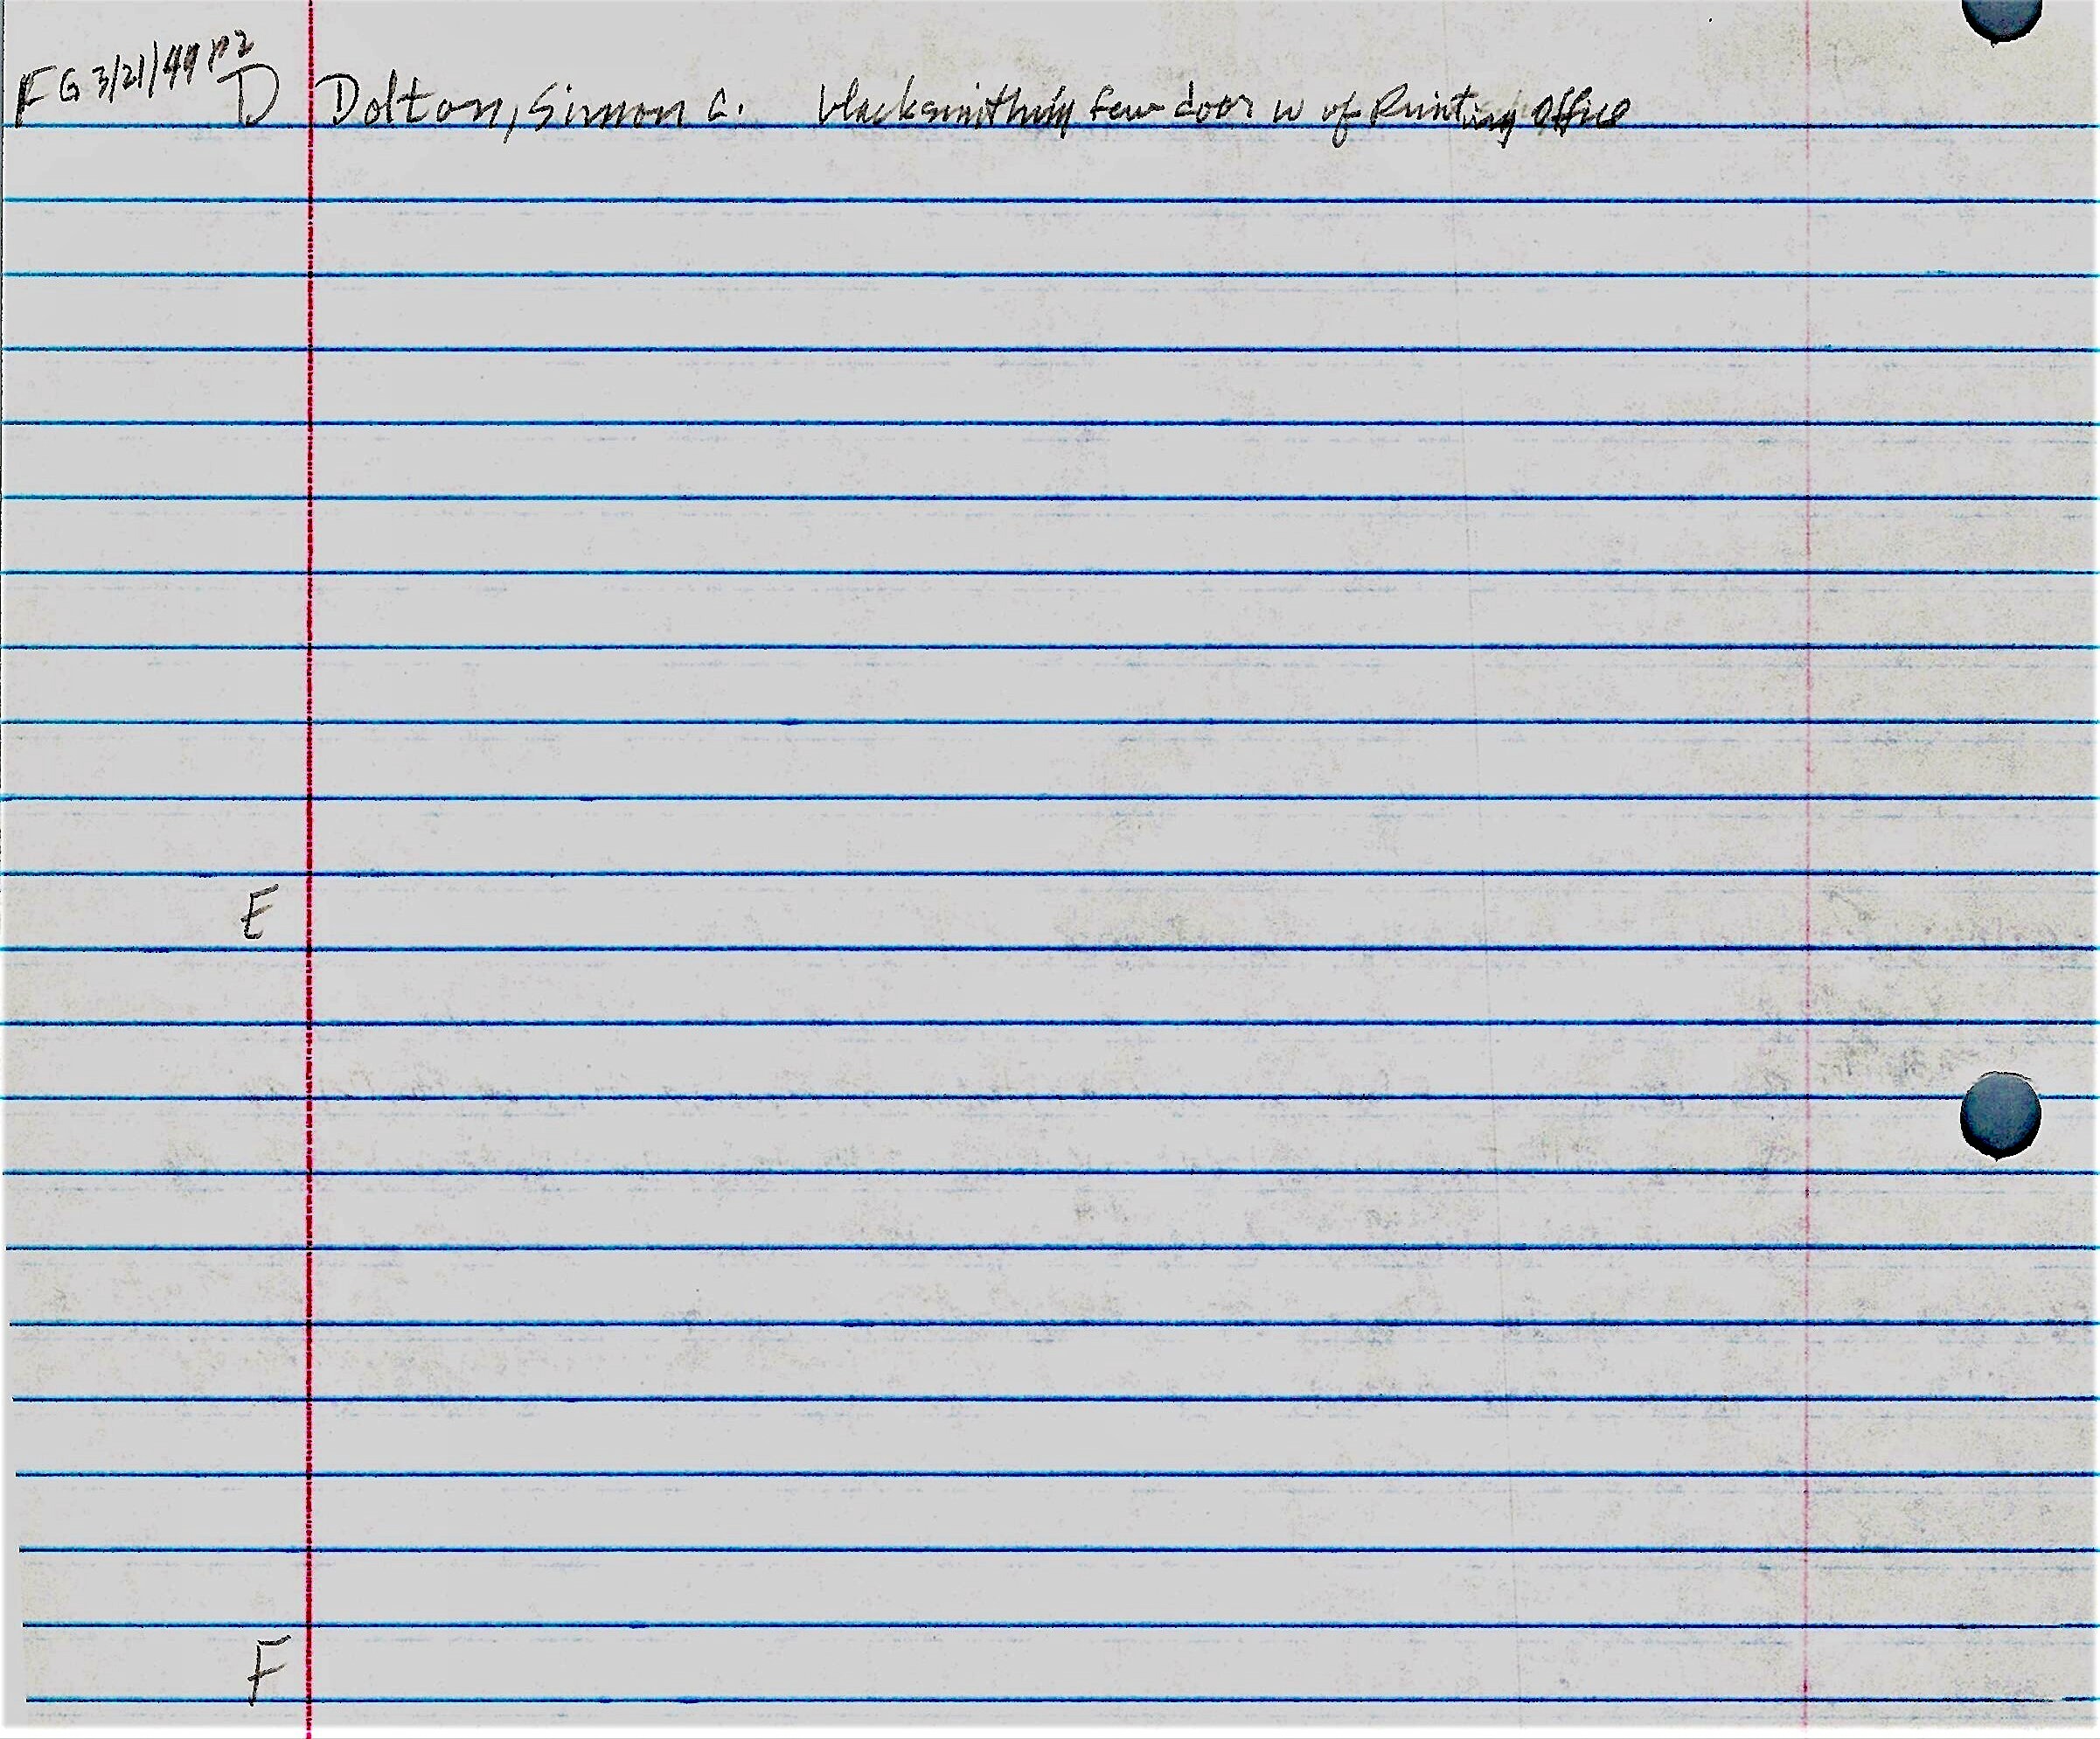 FG 3/21/49 p2 D Dolton, Simon C. blacksmithing few door w of Printing Office
E
F